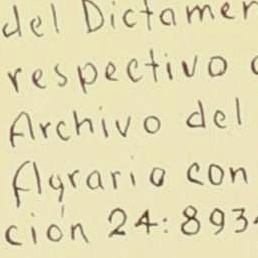 del Dictamen
respectivo
Archivo del
Agrario con
ción 24:893